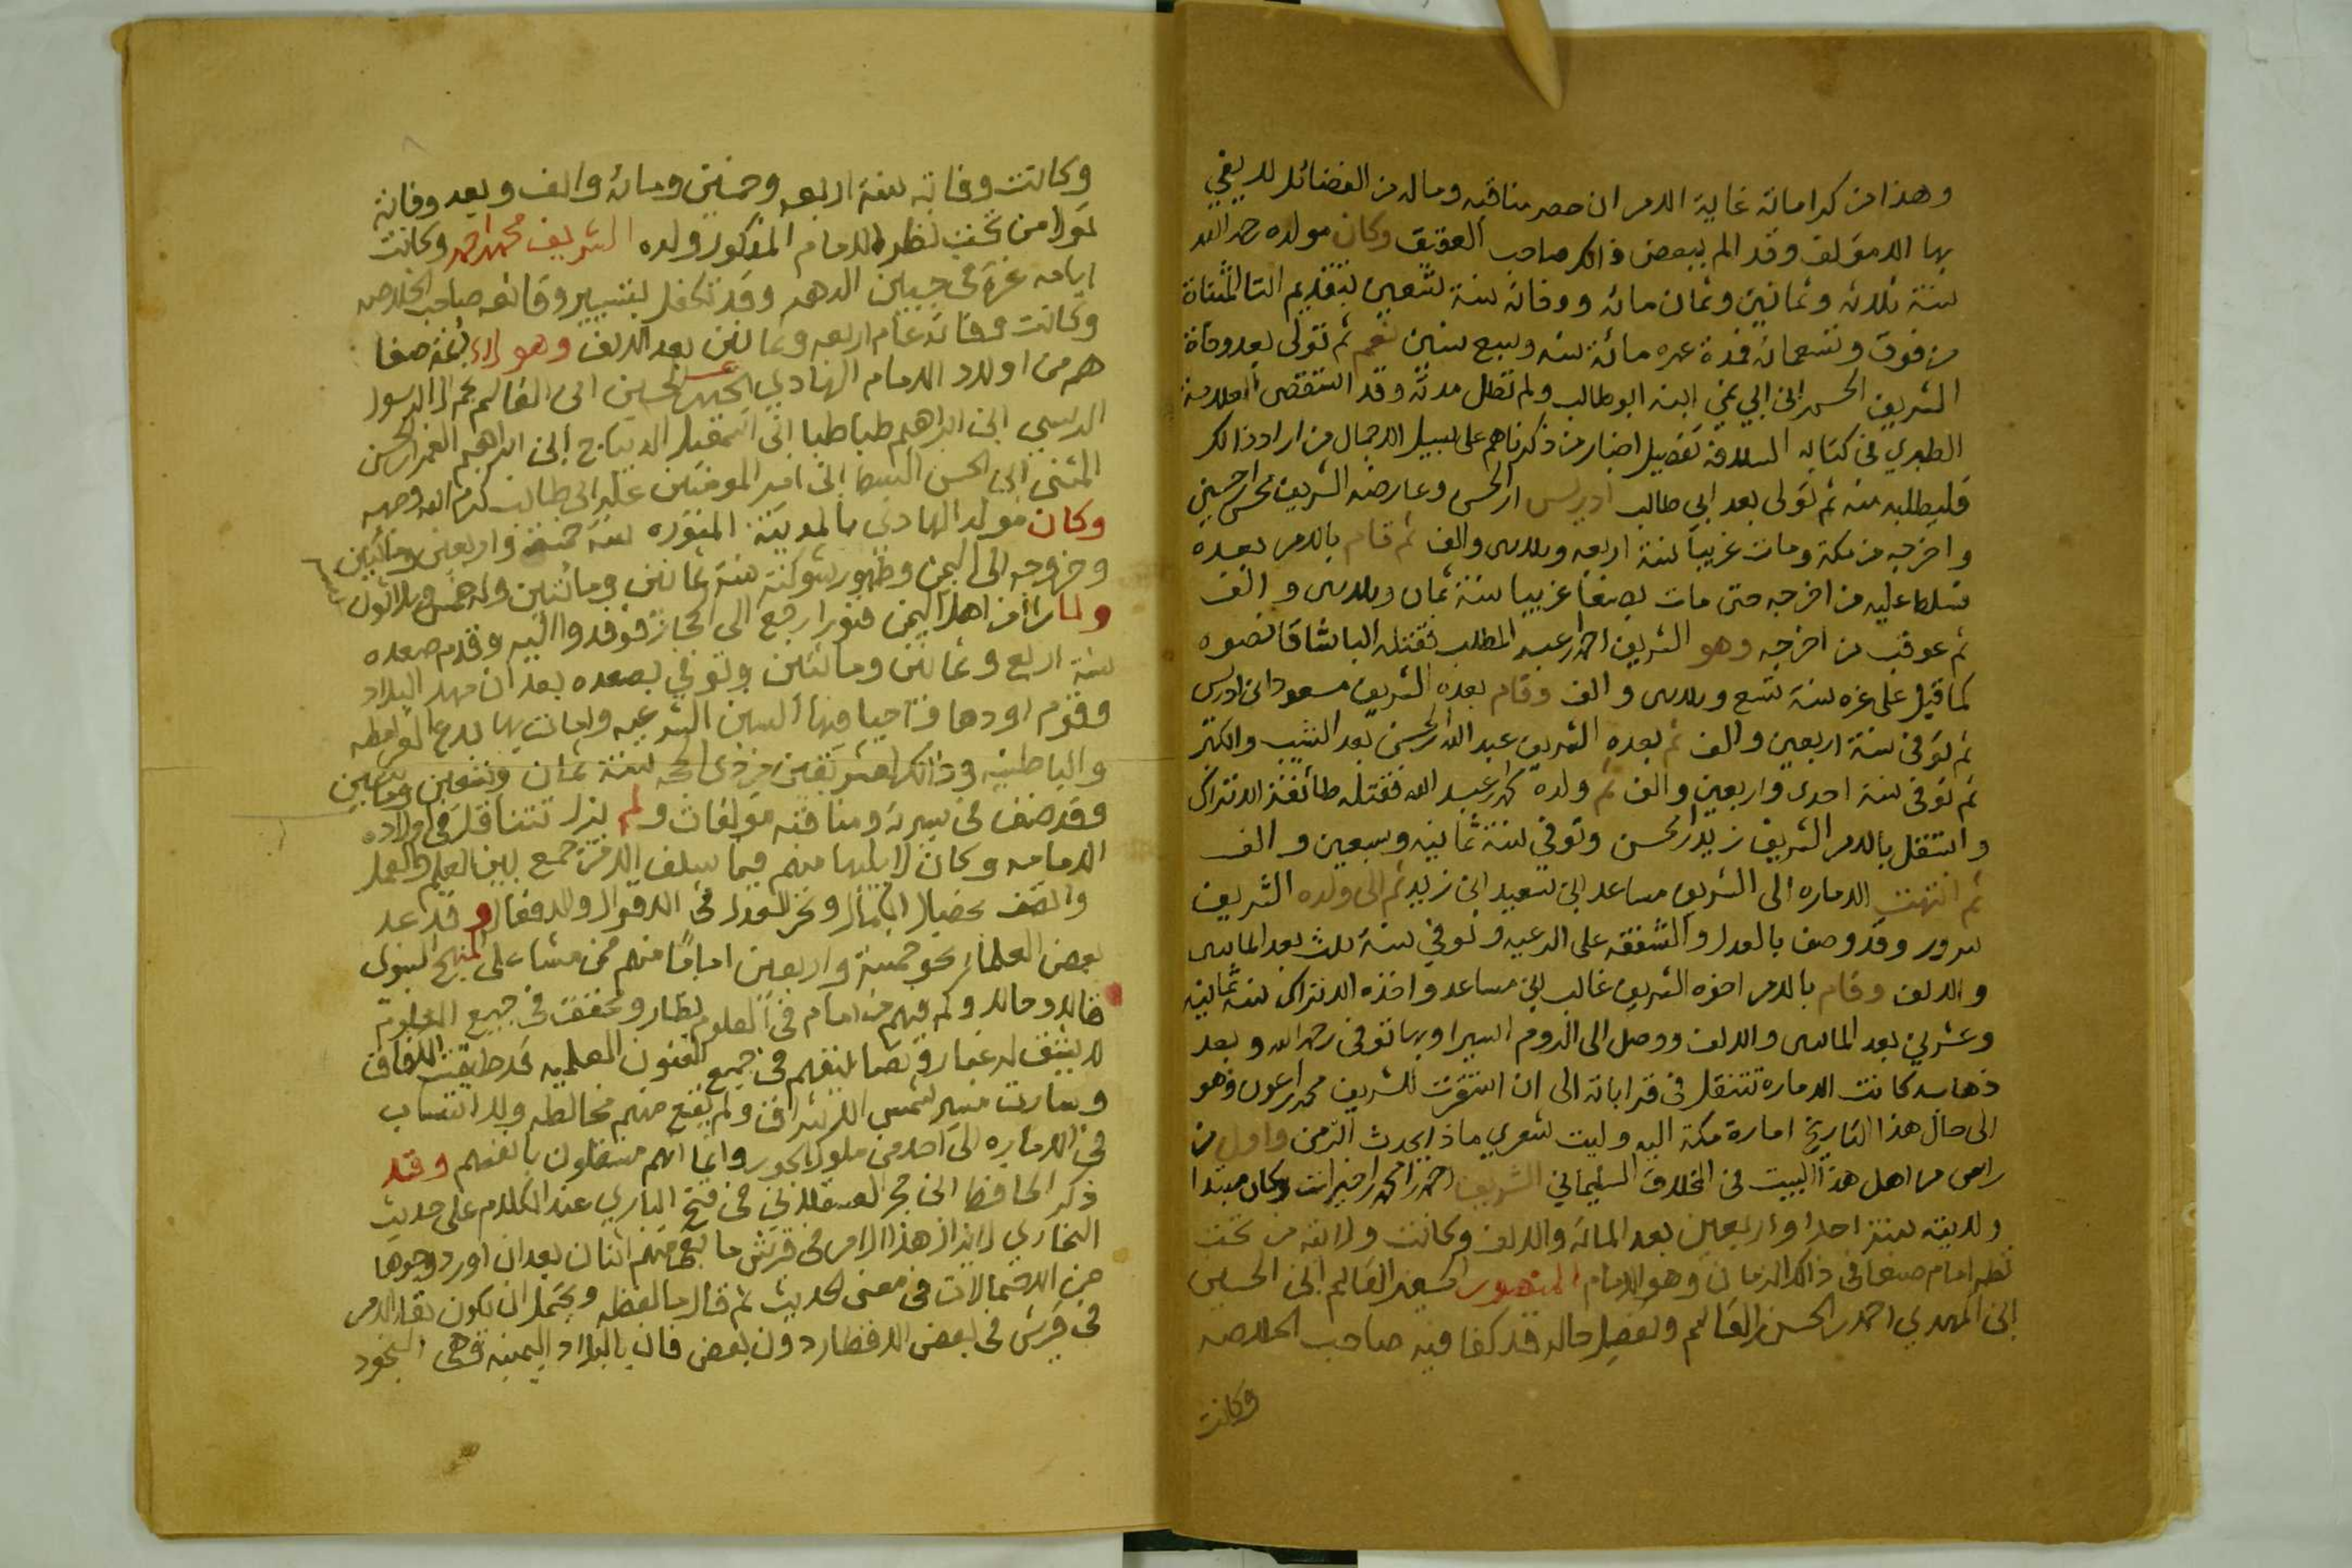 وهذا من كراماته غاية الامر ان حصر مناقبه وماله من الفضائل لا يفي
بها الا مؤلف وقد الم ببعض ذالك صاحب العقيق وكان مولده رحمه الله
سنة ثلاثه وثمانين وثمان مائه ووفاته سنة تسعين بتقديم التا المثناة
من فوق وتسعمائه فمدة عمره مائة سنه وسبع سنين نعم ثم تولى بعد وفاة
الشريف الحسن ابن ابي نمي ابنه ابو طالب ولم تطل مدته وقد استقصى العلامة
الطبري في كتابه السلافه تفصيل اخبار من ذكرناهم على سبيل الاجمال من اراد ذالك
فليطلبه منه ثم تولى بعد ابي طالب ادريس ابن الحسن وعارضه الشريف محسن بن حسين
واخرجه من مكة ومات غريبا سنة اربعه وثلاثين والف ثم قام بالامر بعده
فسلط عليه من اخرجه حتى مات بصنعا غريبا سنة ثمان وثلاثين والف
ثم عوقب من اخرجه وهو الشريف احمد بن عبد المطلب فقتله الباشا قانصوه
كما قيل على غره سنة تسع وثلاثين والف وقام بعده الشريف مسعود ابن ادريس
ثم توفى سنة اربعين والف ثم بعده الشريف عبد الله بن الحسن بعد الشيب والكبر
ثم توفى سنة احدى واربعين والف ثم ولده محمد بن عبد الله فقتله طائفة الاتراك
وانتقل بالامر الشريف زيد بن محسن وتوفي سنة ثمانيه وسبعين والف
ثم انتهت الاماره الى الشريف مساعد ابن سعيد ابن زيد ثم الى ولده الشريف
سرور وقد وصف بالعدل والشفقه على الرعيه وتوفي سنة ثلاث بعد المائتين
والالف وقام بالامر اخوه الشريف غالب بن مساعد واخذه الاتراك سنة ثمانيه
وعشرين بعد المائتين والالف ووصل الى الروم اسيرا وبها توفى رحمه الله وبعد
ذهابه كانت الاماره تتنقل في قراباته الى ان استقرت للشريف محمد بن عون وهو
الى حال هذا التاريخ امارة مكة اليه وليت شعري ماذا يحدث الزمن واول من
راس من اهل هذا البيت في المخلاف السليماني الشريف احمد بن محمد بن خيرات وكان مبتدا
ولايته سنة احدا واربعين بعد المائه والالف وكانت ولايته من تحت
نظر امام صنعا في ذالك الزمان وهو الامام المنصور الحسين بن القاسم ابن الحسين
ابن المهدي احمد بن الحسن بن القاسم وتفصيل حاله قد كفا فيه صاحب الخلاصه
وكانت
وكانت وفاته سنة اربعه وخمسين ومائه والف وبعد وفاته
تولا من تحت نظر الامام المذكور ولده الشريف محمد بن احمد وكانت
ايامه غرة في جبين الدهر وقد تكفل بتسيير وقائعه صاحب الخلاصه
وكانت وفاته عام اربعه وثمانين بعد الالف وهو لاء ائمة صنعا
هم من اولاد الامام الهادي يحيى بن الحسين ابن القاسم نجم ال الرسول
الرسي ابن ابراهيم طباطبا ابن اسمعيل الديباج ابن ابراهيم الغمر بن الحسن
المثنى ابن الحسن السبط ابن امير المومنين علي بن ابي طالب كرم الله وجهه
وكان مولد الهادي بالمدينة المنوره سنة خمسه واربعين ومائتين
وخروجه الى اليمن وظهور شوكته سنة ثمانين ومائتين وله خمس وثلاثون سنه
ولما راا من اهل اليمن فتورا رجع الى الحجاز فوفدوا اليه وقدم صعده
سنة اربع وثمانين ومائتين وتوفي بصعده بعد ان مهد البلاد
وقوم اودها فاحيا فيها السنن الشرعيه وامات بها بدع القرامطه
والباطنيه وذالك لعشر بقين من ذي الحجه سنة ثمان وتسعين ومائتين
وقد صنف في سيرته ومناقبه مؤلفات ولم تزل تتناقل في اولاده
الامامه وكان لا يليها منهم فيما سلف الا من جمع بين العلم والعمل
واتصف بخصال الكمال وتحرا للعدل في الاقوال والافعال وقد عد
بعض العلماء نحو خمسة واربعين اماما منهم ممن مشا على المنهج النبوى
خالد وحالد وكم فيهم من امام في العلوم نظار ومحقق في جميع العلوم
لا يشق له غبار وتصانيفهم في جميع الفنون العلميه قد طبقت الافاق
وسارت مسير شمس الاشراق ولم يقع منهم مخالطه ولا انتساب
في الاماره الى احد من ملوك الجور وانما انهم مستقلون بانفسهم وقد
ذكر الحافظ ابن حجر العسقلاني في فتح الباري عند الكلام على حديث
البخاري لا يزال هذا الامر في قريش ما بقي منهم اثنان بعد ان اورد وجوها
من الاحتمالات في معنى الحديث ثم قال ما لفظه ويحتمل ان يكون بقاء الامر
في قريش في بعض الاقطار دون بعض فان بالبلاد اليمنيه وهي النجود